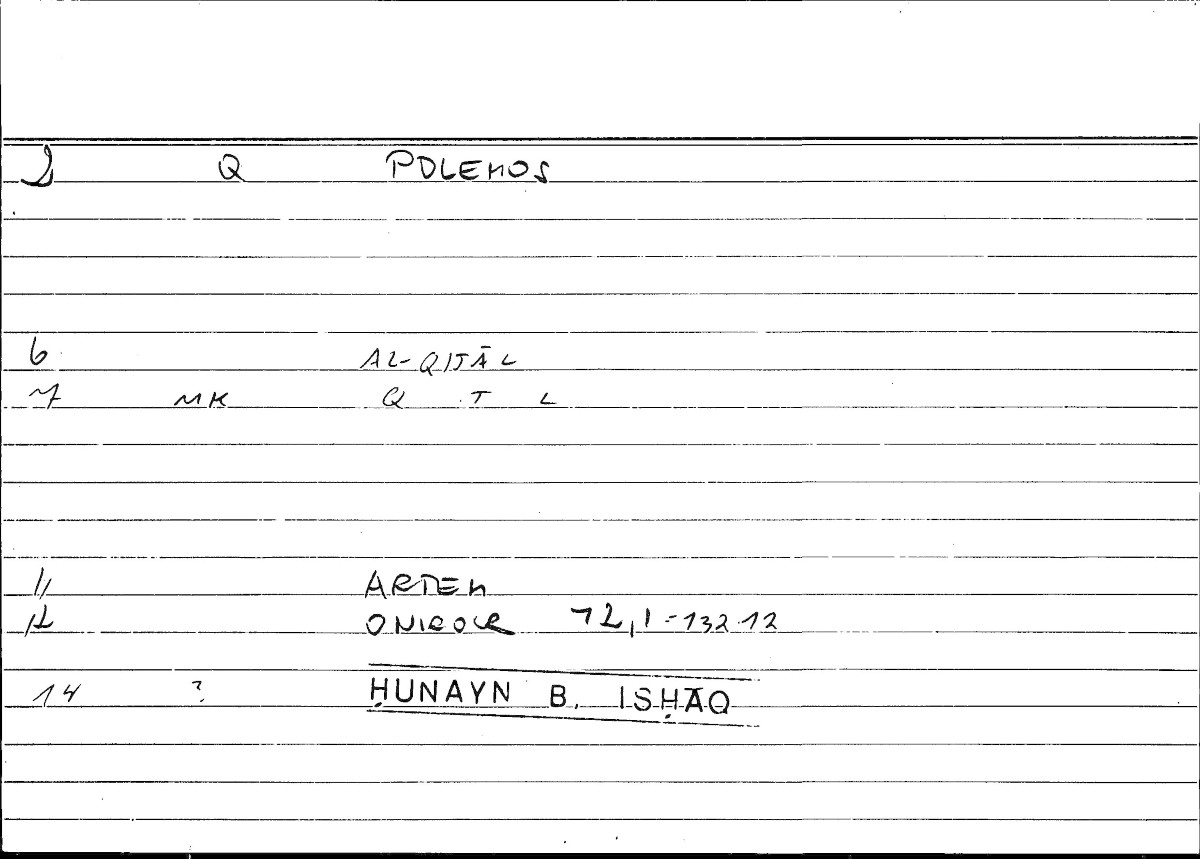 2 Q POLEMOS
6 AL-QITĀL
7 MK Q T L
11 ARTEM
12 ONIROCR 12,1=132.12
14 ? ḤUNAYN B. ISḤĀQ